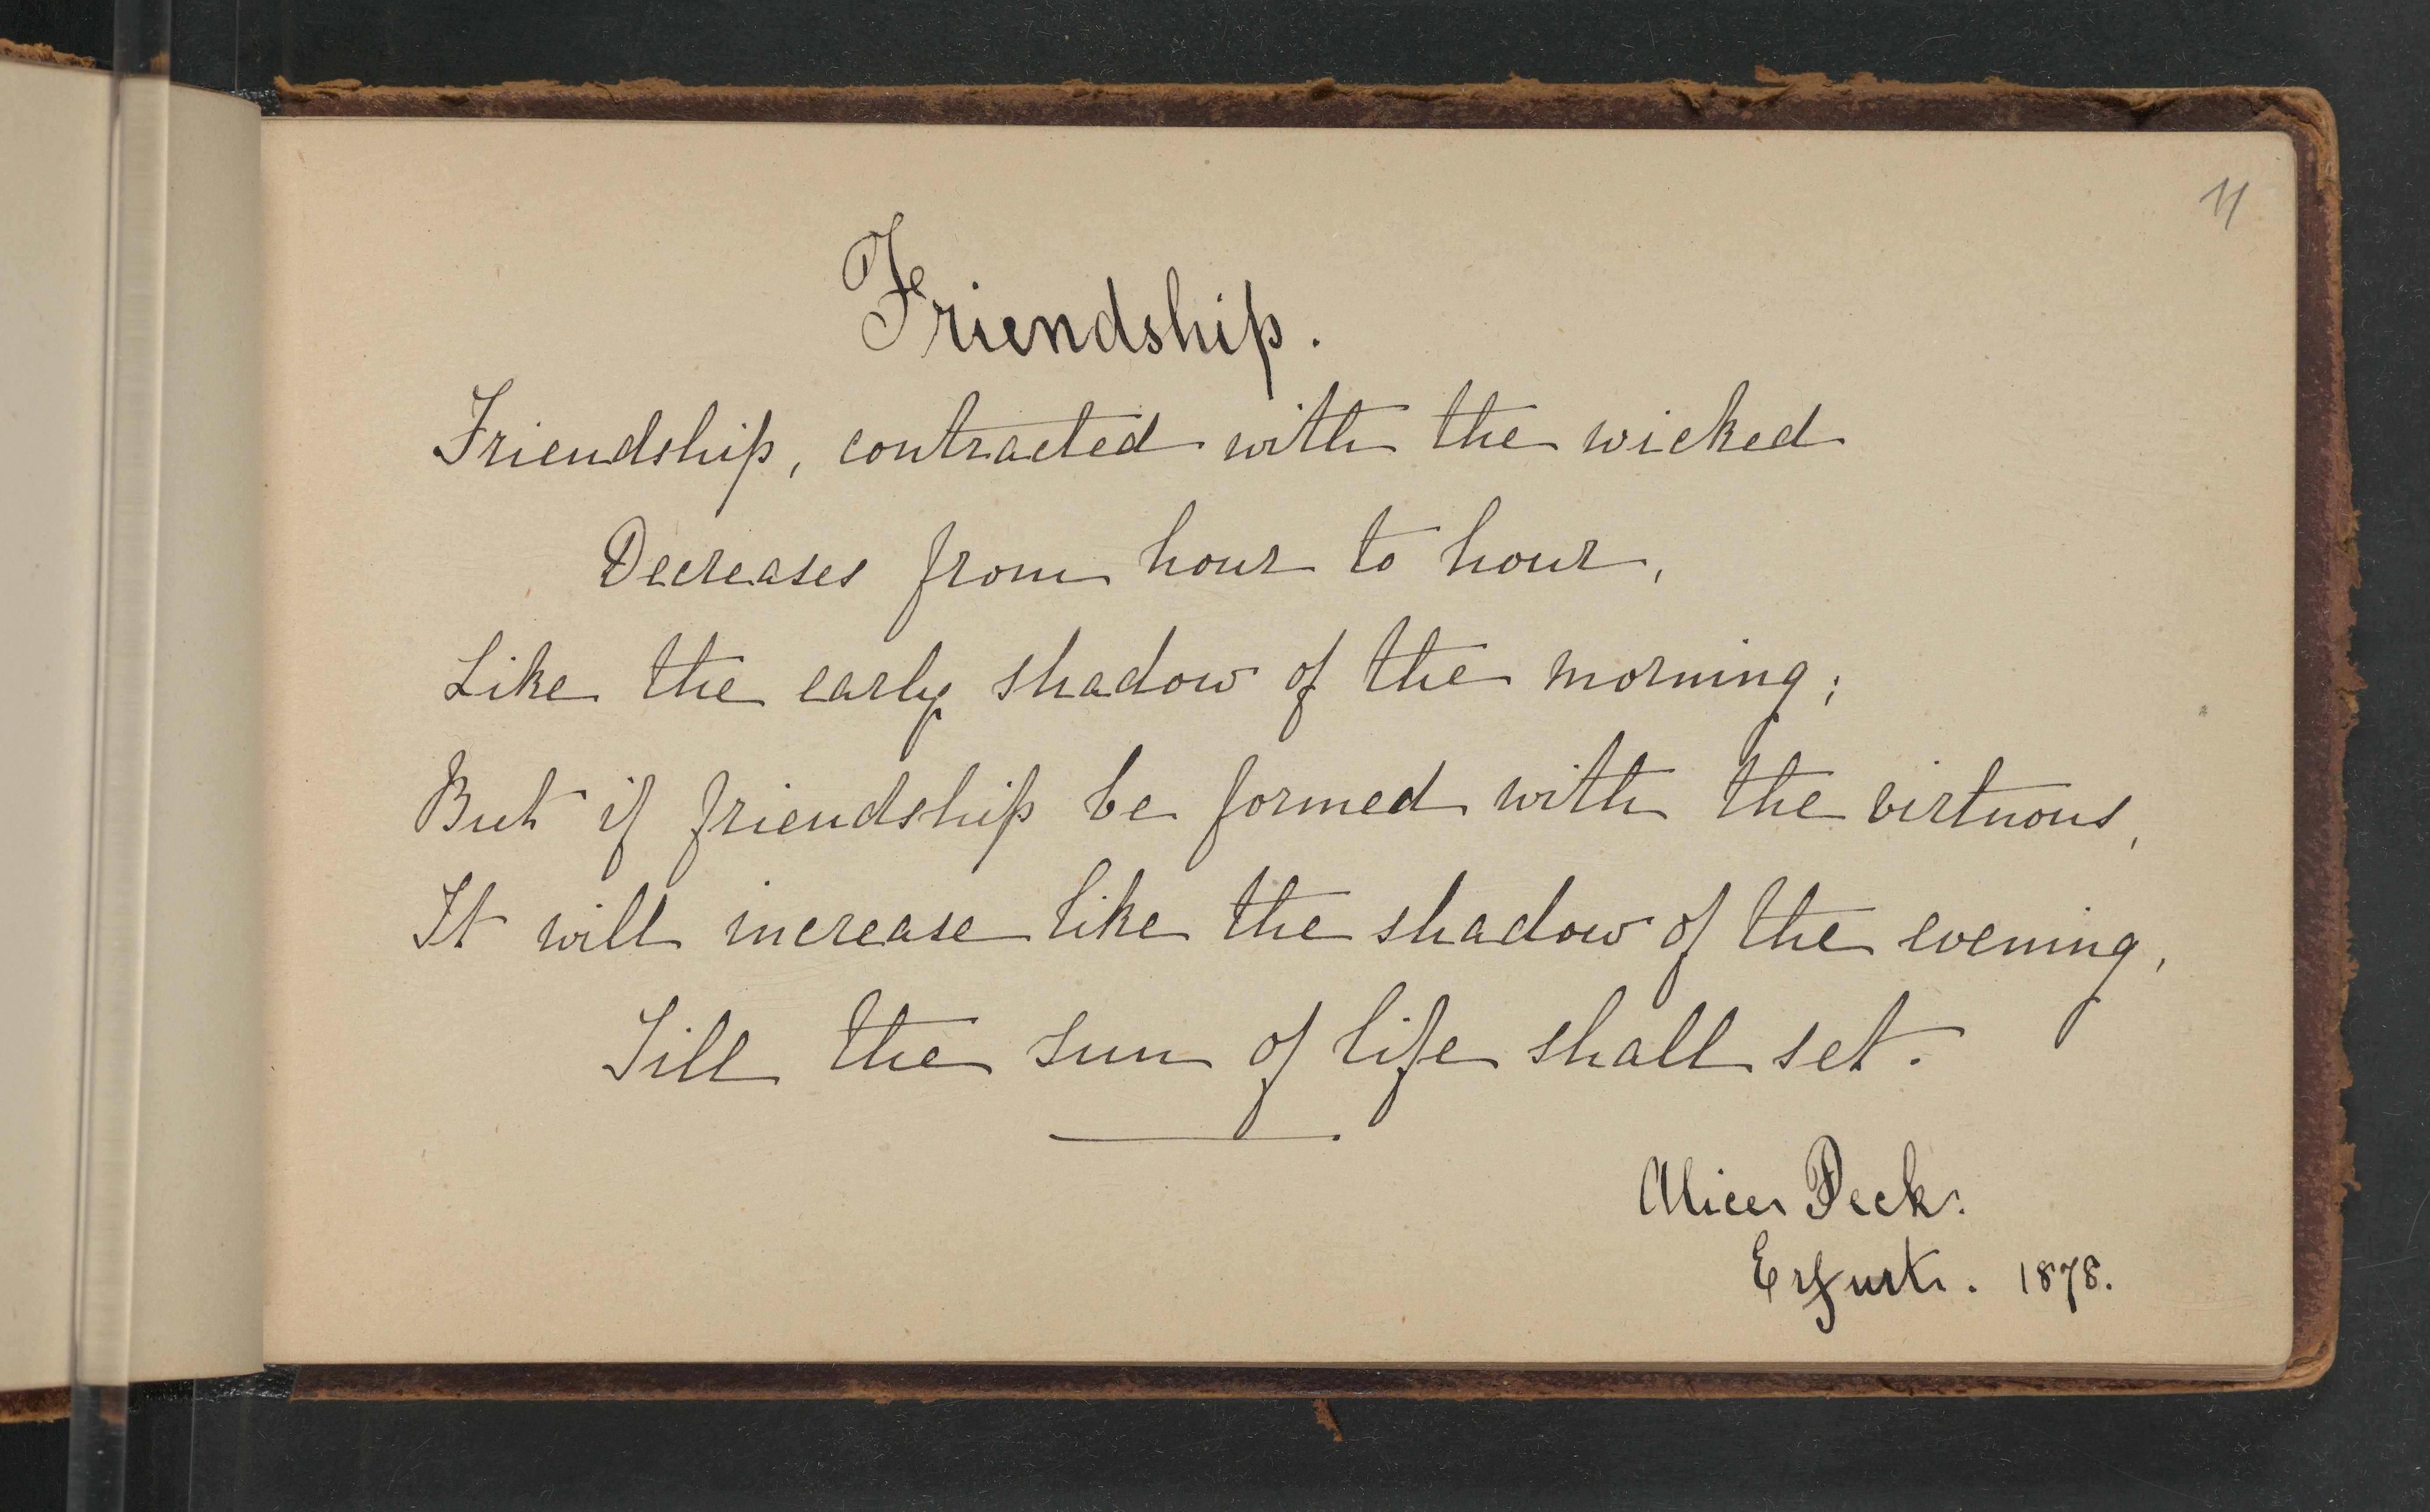 11
Friendship.
Friendship, contracted with the wicked
Decreases from hour to hour,
Like the early shadow of the morning;
But if friendship be formed with the virtuous,
It will increase like the shadow of the evening,
Till the sun of life shall set.
Alice Peck.
Erfurt. 1878.